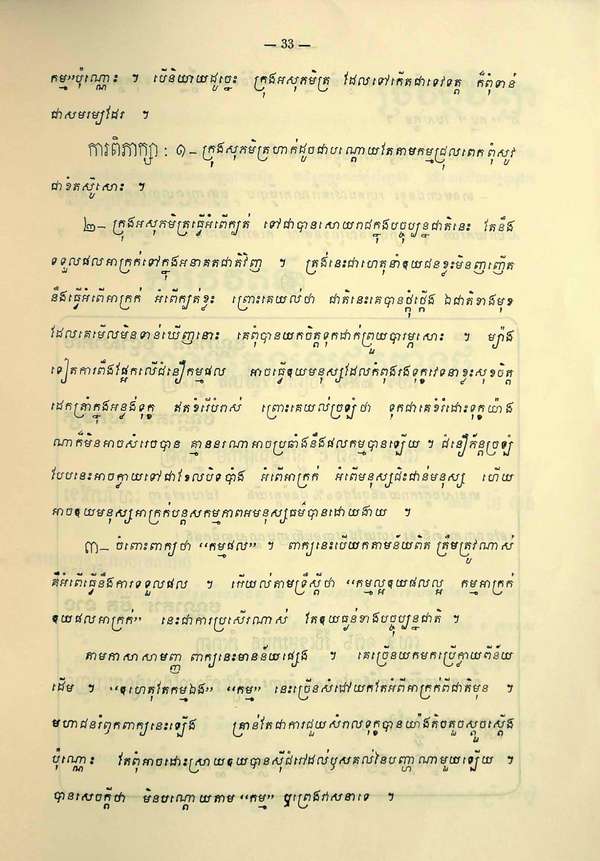 — 33 —
កម្ម»ប៉ុណ្ណោះ ។ បើនិយាយដូច្នេះ ក្រុងអសុភមិត្រ ដែលទៅកើតជាទេវទត្ត ក៏ពុំទាន់
ជាសមរម្យដែរ ។
ការពិភាក្សា : ១— ក្រុងសុភមិត្រហាក់ដូចជាបណ្ដោយតែតាមកម្មជ្រុលពេក ពុំសូវ
ជាខំតស៊ូសោះ ។
២— ក្រុងអសុភមិត្រធ្វើអំពើក្បត់ ទៅជាបានសោយរាជក្នុងបច្ចុប្បន្នជាតិនេះ តែនឹង
ទទួលផលអាក្រក់ទៅក្នុងអនាគតជាតិវិញ ។ ត្រង់នេះជាហេតុនាំឲ្យជនខ្លះមិនញញើត
នឹងធ្វើអំពើអាក្រក់ អំពើក្បត់ខ្លះ ព្រោះគេយល់ថា ជាតិនេះគេបានថ្កុំថ្កើង ឯជាតិខាងមុខ
ដែលគេមើលមិនទាន់ឃើញនោះ គេពុំបានយកចិត្តទុកដាក់ព្រួយបារម្ភសោះ ។ ម្យ៉ាង
ទៀតការពឹងផ្អែកលើជំនឿកម្មផល អាចធ្វើឲ្យមនុស្សដែលកំពុងរងទុក្ខវេទនាខ្លះសុខចិត្ត
ដេកត្រាំក្នុងអន្លង់ទុក្ខ ឥតខំរើបំរាស់ ព្រោះគេយល់ច្រឡំថា ទុកជាគេខំរំដោះទុក្ខយ៉ាង
ណាក៏មិនអាចសំរេចបាន គ្មាននរណាអាចប្រឆាំងនឹងផលកម្មបានឡើយ ។ ជំនឿភ័ន្តច្រឡំ
បែបនេះអាចក្លាយទៅជាខែលបិទបាំង អំពើអាក្រក់ អំពើមនុស្សជិះជាន់មនុស្ស ហើយ
អាចឲ្យមនុស្សអាក្រក់បន្តសកម្មភាពអមនុស្សធម៌បានដោយងាយ ។
៣— ចំពោះពាក្យថា «កម្មផល» ។ ពាក្យនេះបើយកតាមន័យពិត ត្រឹមត្រូវណាស់
គឺអំពើធ្វើនឹងការទទួលផល ។ បើយល់តាមទ្រឹស្ដីថា «កម្មល្អឲ្យផលល្អ កម្មអាក្រក់
ឲ្យផលអាក្រក់» នេះជាការប្រសើរណាស់ តែឲ្យធ្ងន់ខាងបច្ចុប្បន្នជាតិ ។
តាមភាសាសាមញ្ញ ពាក្យនេះមានន័យផ្សេង ។ គេច្រើនយកមកប្រើក្លាយពីន័យ
ដើម ។ «ឲហេតុតែកម្មឯង» «កម្ម» នេះច្រើនសំដៅយកតែអំពីអាក្រក់ពីជាតិមុន ។
មហាជនរំឭកពាក្យនេះឡើង គ្រាន់តែជាការជួយសំរាលទុក្ខបានយ៉ាងតិចតួចស្ដួចស្ដើង
ប៉ុណ្ណោះ តែពុំអាចដោះស្រាយឲ្យបានស៊ីជំរៅដល់ឫសគល់នៃបញ្ហាណាមួយឡើយ ។
បានសេចក្ដីថា មិនបណ្ដោយតាម «កម្ម» ឬព្រេងវាសនាទេ ។